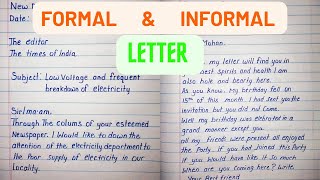 FORMAL & INFORMAL
LETTER
New
Date:
The editor
The times of India
Subject: Low Voltage and frequent
breakdown of electricity
Sir/ma'am.
Through the colums of your esteemed
Newspaper. I would like to down the
attention of the electricity department to
The poor supply of electricity in our
Locality.
Mohan.
my letter will find you in
best spirits and health I am
also hole and hearty here.
As you know. My birthday fell on
15th of this month. I had sent you the
invitation but you did not come.
Well my birthday was celebrated in a
grand manner except you.
all my friends were present all enjoyed
the Party. If you had joined this Party
you would have like it so much
when are you coming here? Write
Your Best friend